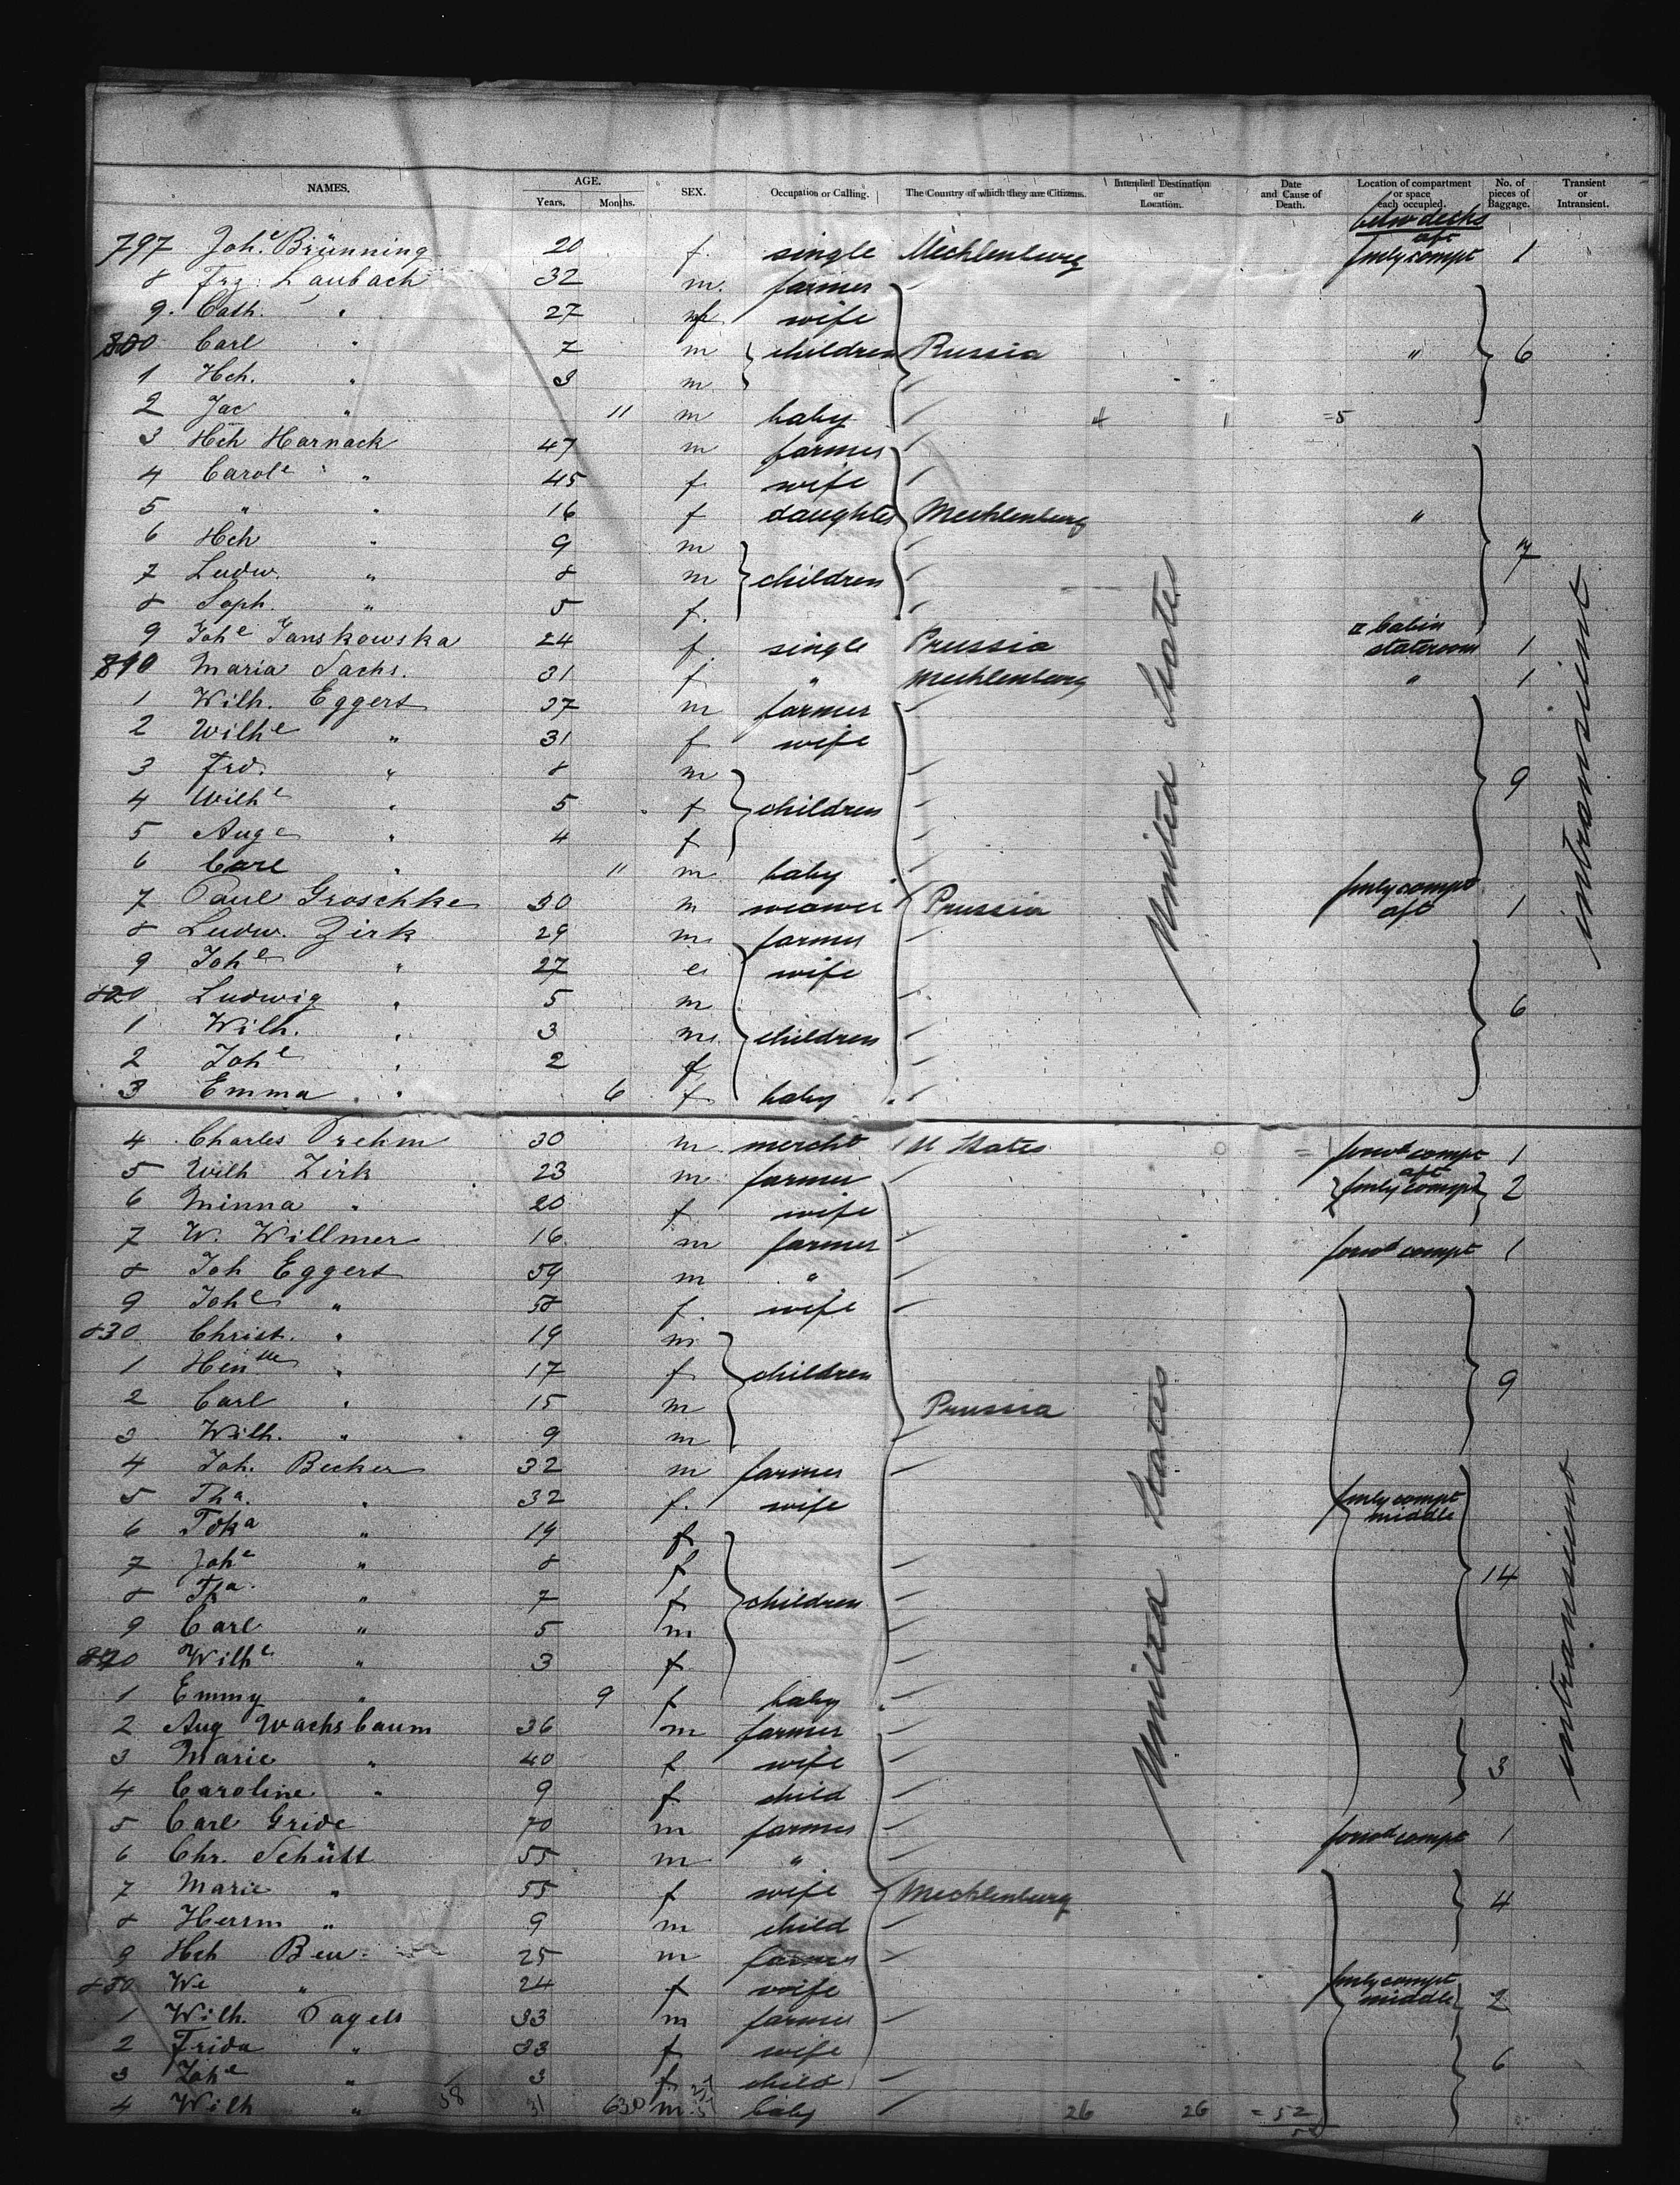 NAMES. AGE. SEX. Occupation or Calling. The Country of which they are Citizens. Intended Destination or Location. Date and Cause of Death. Location of compartment or space each occupied. No. of pieces of Baggage. Transient or Intransient.
Years. Months.
betw decks
797 Joh.e Brünning 20 f. single Mecklenburg fmly compt aft 1
8 Frz. Laubach 32 m. farmer
9. Cath. " 27 f wife
800 Carl " 7 m children Russia " 6
1 Hch. " 3 m
2 Jac " 11 m baby 4 1 =5
3 Hch Harnack 47 m farmer
4 Carole " 45 f wife
5 " " 16 f daughter Mecklenburg "
6 Hch " 9 m 7
7 Ludw. " 8 m children
8 Soph. " 5 f.
9 Johe Janskowska 24 f. single Prussia II Cabin stateroom 1
810 Maria Sachs. 31 f " Mecklenburg " 1
1 Wilh. Eggers 37 m farmer
2 Wilhe " 31 f wife
3 Frd. " 8 m 9
4 Wilhe " 5 f children
5 Auge " 4 f
6 Carl " 11 m baby
7 Paul Groschke 30 m weawer Prussia fmly compt aft 1
8 Ludw. Zirk 29 m farmer
9 Johe " 27 wife
820 Ludwig " 5 m 6
1 Wilh. " 3 m children
2 Johe " 2 f
3 Emma " 6 f baby
United States
intransient
4 Charles Prehm 30 m mercht U States forwd compt 1
5 Wilh Zirk 23 m farmer fmly compt aft 2
6 Minna " 20 f wife
7 W. Willmer 16 m farmer forwd compt 1
8 Joh Eggers 59 m "
9 Johe " 58 f. wife
830 Christ. " 19 m
1 Hentte " 17 f children 9
2 Carl " 15 m Prussia
3 Wilh. " 9 m
4 Joh. Becker 32 m farmer
5 Tha. " 32 f. wife fmly compt middle
6 " 19 f
7 Johe " 8 f 14
8 Tha. " 7 f children
9 Carl " 5 m
840 Wilhe " 3 f
1 Emmy " 9 f baby
2 Aug Wachsbaum 36 m farmer
3 Marie " 40 f wife 3
4 Caroline " 9 f child
5 Carl Gride 70 m farmer forwd compt 1
6 Chr. Schütt 55 m "
7 Marie " 55 f wife Mecklenburg 4
8 Herrm " 9 m child
9 Hch Beu 25 m farmer
850 We " 24 f wife fmly compt middle 2
1 Wilh. Pagels 33 m farmer
2 Frida " 33 f wife 6
3 Johe " 3 f child
4 Wilh " 58 31 m baby 26 26 = 52
United States
intransient